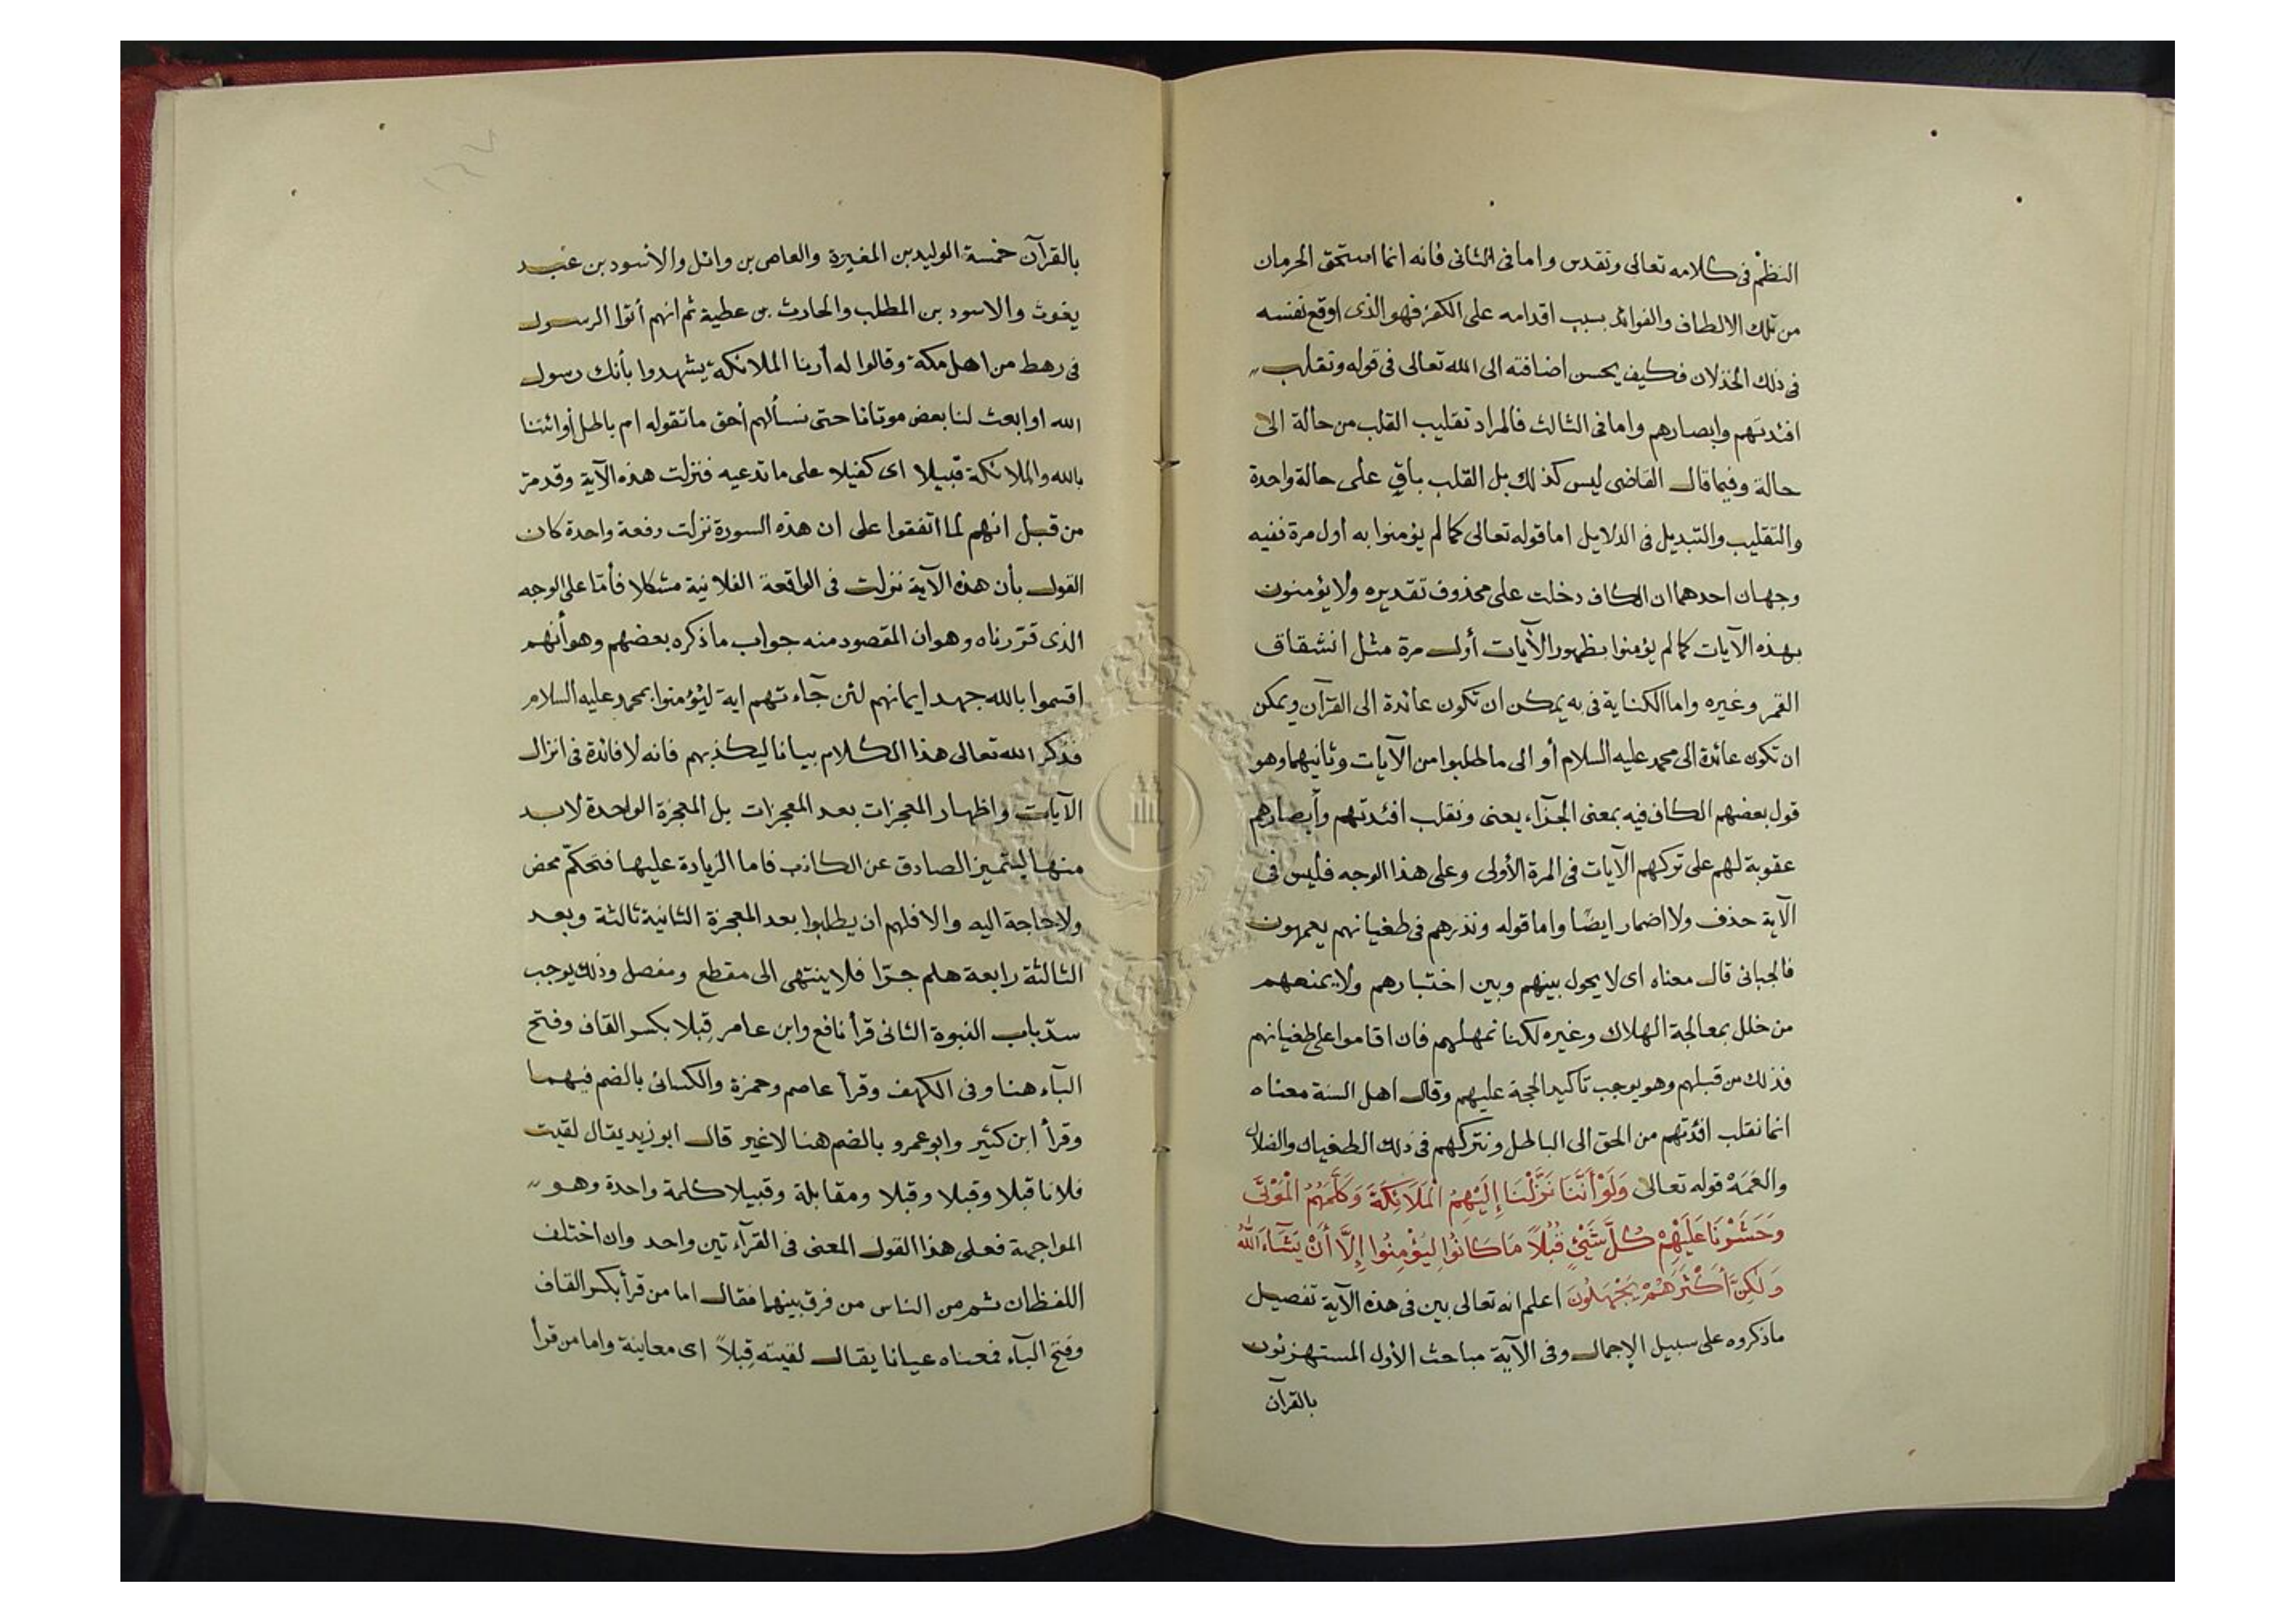 النظم في كلامه تعالى وتقدس واما في الثاني فانه انما استحق الحرمان
من تلك الالطاف والفوائد بسبب اقدامه على الكفر فهو الذى اوقع نفسه
في ذلك الخذلان فكيف يحسن اضافته الى الله تعالى في قوله ونقلب
افئدتهم وابصارهم واما في الثالث فالمراد تقليب القلب من حالة الى
حالة وفيما قال القاضى ليس كذلك بل القلب باق على حالة واحدة
والتقليب والتبديل في الدلايل اما قوله تعالى كما لم يؤمنوا به اول مرة ففيه
وجهان احدهما ان الكاف دخلت على محذوف تقديره ولا يؤمنون
بهذه الآيات كما لم يؤمنوا بظهور الآيات أول مرة مثل انشقاق
القمر وغيره واما الكناية في به يمكن ان تكون عائدة الى القرآن ويمكن
ان تكون عائدة الى محمد عليه السلام أو الى ما طلبوا من الآيات وثانيهما وهو
قول بعضهم الكاف فيه بمعنى الجزآء يعنى ونقلب افئدتهم وأبصارهم
عقوبة لهم على تركهم الآيات في المرة الأولى وعلى هذا الوجه فليس في
الآية حذف ولا اضمار ايضا واما قوله ونذرهم في طغيانهم يعمهون
فالجبائى قال معناه اى لا يحول بينهم وبين اختبارهم ولا يمنعهم
من خلل بمعالجة الهلاك وغيره لكنا نمهلهم فان اقاموا على طغيانهم
فذلك من قبلهم وهو يوجب تاكيد الحجة عليهم وقال اهل السنة معناه
انما نقلب افئدتهم من الحق الى الباطل ونتركهم في ذلك الطغيان والضلال
والعَمَهْ قوله تعالى وَلَوْ أَنَّنَا نَزَّلْنَا إِلَيْهِمُ الْمَلَائِكَةَ وَكَلَّمَهُمُ الْمَوْتَى
وَحَشَرْنَا عَلَيْهِمْ كُلَّ شَيْئٍ قُبُلًا مَا كَانُوا لِيُؤْمِنُوا إِلَّا أَنْ يَشَآءَ اللهُ
وَلَكِنَّ أَكْثَرَهُمْ يَجْهَلُونَ اعلم انه تعالى بين في هذه الآية تفصيل
ما ذكروه على سبيل الإجمال وفى الآية مباحث الأول المستهزئون
بالقرآن
١٦٧
بالقرآن خمسة الوليد بن المغيرة والعاص بن وائل والاسود بن عبد
يغوث والاسود بن المطلب والحارث بن عطية ثم انهم أتوا الرسول
في رهط من اهل مكة وقالوا له أرنا الملائكة يشهدوا بأنك رسول
الله او ابعث لنا بعض موتانا حتى نسألهم أحق ما تقوله ام باطل أوائتنا
بالله والملائكة قبيلا اى كفيلا على ما تدعيه فنزلت هذه الآية وقد مرّ
من قبل انهم لما اتفقوا على ان هذه السورة نزلت دفعة واحدة كان
القول بأن هذه الآية نزلت في الواقعة الفلانية مشكلا فأمّا على الوجه
الذى قرّرناه وهو ان المقصود منه جواب ما ذكره بعضهم وهو أنهم
اقسموا بالله جهد ايمانهم لئن جآءتهم اية ليؤمنوا بمحمد عليه السلام
فذكر الله تعالى هذا الكلام بيانا ليكذبهم فانه لا فائدة في انزال
الآيات واظهار المعجزات بعد المعجزات بل المعجزة الواحدة لا بد
منها ليتميز الصادق عن الكاذب فاما الزيادة عليها فتحكّم محض
ولا حاجة اليه والا فلهم ان يطلبوا بعد المعجزة الثانية ثالثة وبعد
الثالثة رابعة هلم جرّا فلا ينتهى الى مقطع ومفصل وذلك يوجب
سدّ باب النبوة الثانى قرأ نافع وابن عامر قِبلا بكسر القاف وفتح
البآء هنا وفى الكهف وقرأ عاصم وحمزة والكسائى بالضم فيهما
وقرأ ابن كثير وابو عمرو بالضم هنا لا غير قال ابو زيد يقال لقيت
فلانا قبلا وقبلا وقبلا ومقابلة وقبيلا كلمة واحدة وهو
المواجهة فعلى هذا القول المعنى في القرآءتين واحد وان اختلف
اللفظان ثم من الناس من فرق بينهما فقال اما من قرأ بكسر القاف
وفتح البآء فمعناه عيانا يقال لقيته قِبلاً اى معاينة واما من قرأ